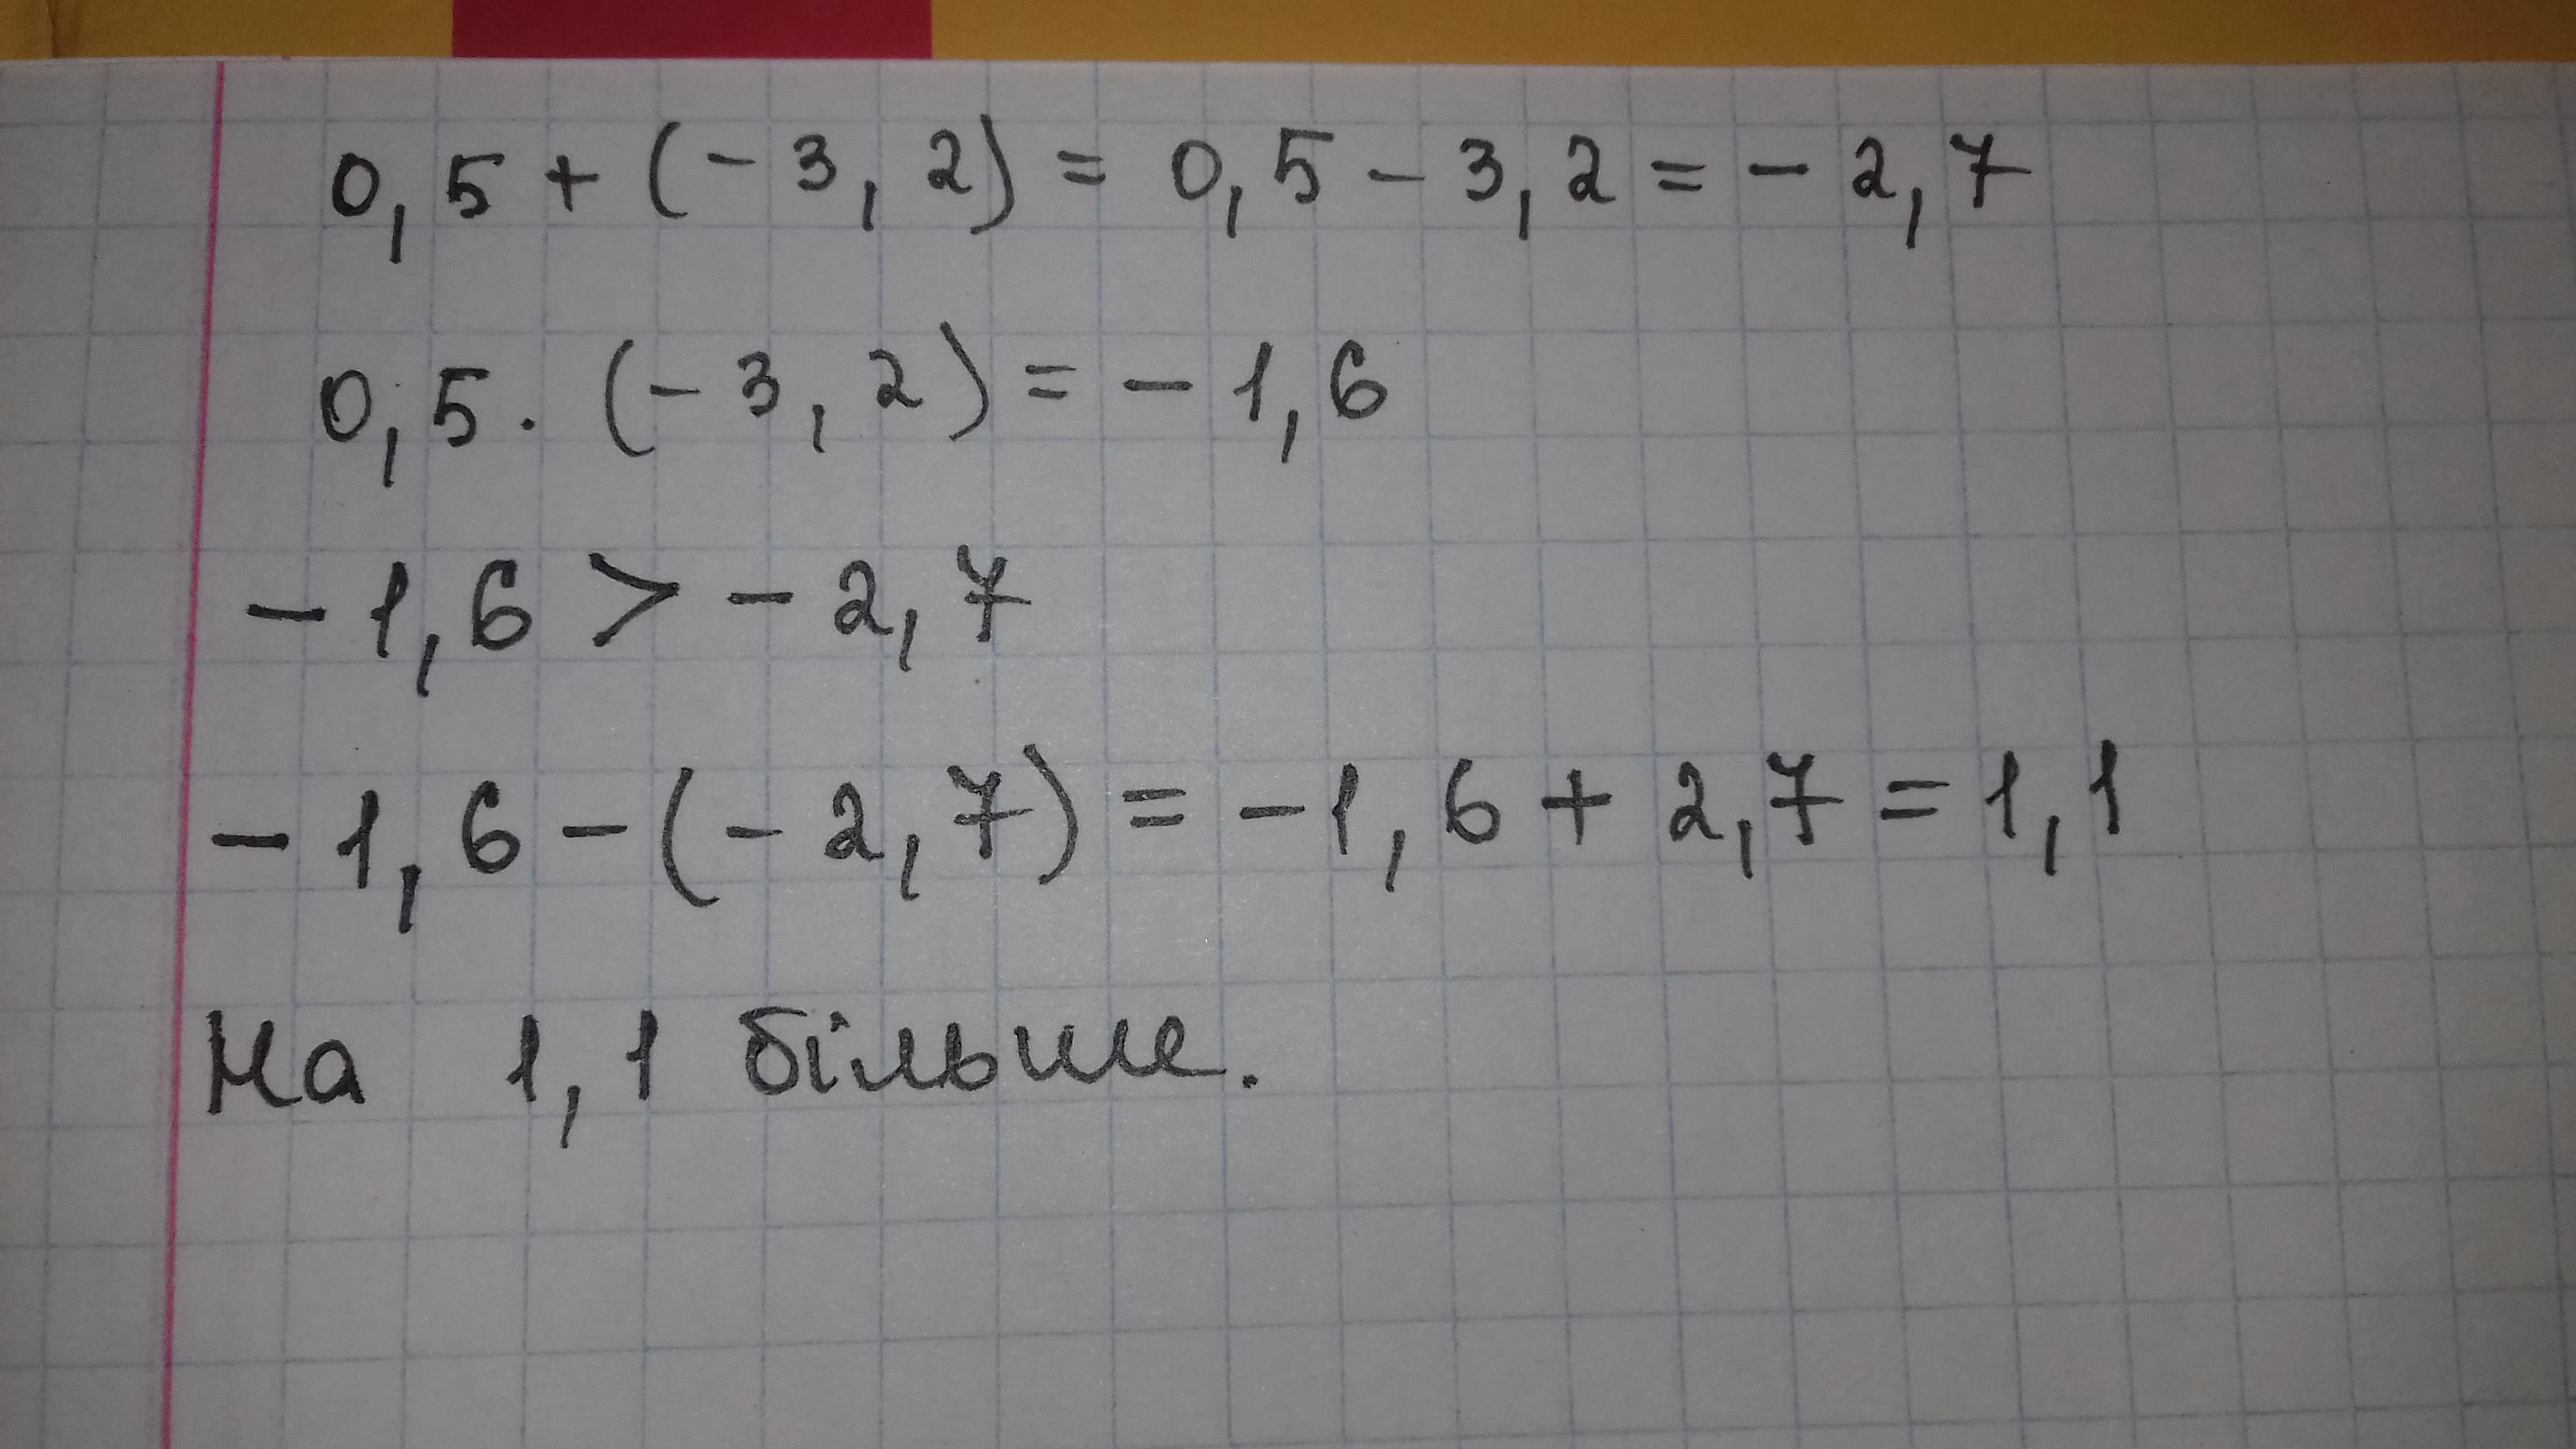 0,5 + (-3,2) = 0,5 - 3,2 = -2,7
0,5 · (-3,2) = -1,6
-1,6 > -2,7
-1,6 - (-2,7) = -1,6 + 2,7 = 1,1
На 1,1 більше.